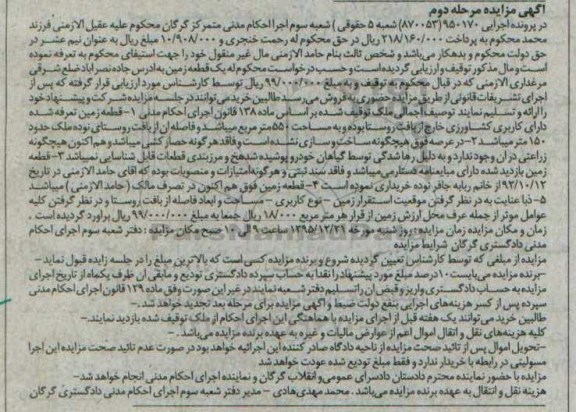 آگهی مزایده مرحله دوم
در پرونده اجرایی ۹۵۰۱۷۰ (۸۷۰۰۵۳ شعبه ۵ حقوقی) شعبه سوم اجرا احکام مدنی متمرکز گرگان محکوم علیه عقیل الازمنی فرزند
محمد محکوم به پرداخت ۲۱۸/۱۶۰/۰۰۰ ریال در حق محکوم له رحمت خنجری و ۱۰/۹۰۸/۰۰۰ مبلغ ریال به عنوان نیم عشر در
حق دولت محکوم و بدهکار می‌باشد و شخص ثالث بنام حامد الازمنی مال غیر منقول خود را جهت استیفای محکوم به تعرفه نموده
است و مال مذکور توقیف و ارزیابی گردیده است و حسب درخواست محکوم له یک قطعه زمین به ادرس جاده نصرآباد ضلع شرقی
مرغداری الازمنی که در قبال محکوم به توقیف و به مبلغ ۹۹/۰۰۰/۰۰۰ ریال توسط کارشناس مورد ارزیابی قرار گرفته که پس از
اجرای تشریفات قانونی از طریق مزایده حضوری به فروش می‌رسد طالبین خرید می‌توانند در جلسه مزایده شرکت و پیشنهاد خود
را ارائه و تسلیم نمایند توصیف اجمالی ملک توقیف شده بر اساس ماده ۱۳۸ قانون اجرای احکام مدنی ۱-قطعه زمین تعرفه شده
دارای کاربری کشاورزی خارج از بافت روستا بوده و به مساحت ۵۵۰۰ متر مربع میباشد و فاصله ان از بافت روستای نوده ملک حدود
۱۵۰ متر میباشد ۲-در عرصه فوق هیچگونه ساخت و سازی نشده است و فاقد هر گونه حصار کشی میباشد و هم اکنون هیچگونه
زراعتی در آن وجود ندارد و به دلیل رها شدگی توسط گیاهان خودرو پوشیده شده و مرزبندی قطعات قابل شناسایی نمیباشد ۳-قطعه
زمین بازدید شده دارای مبایعه نامه دستی میباشد و فاقد سند ثبتی و هر گونه امتیازات و منصوبات بوده که اقای حامد الازمنی در تاریخ
۹۲/۱۰/۱۲ از خانم ربابه جافر نوده خریداری نموده است ۴-قطعه زمین فوق هم اکنون در تصرف مالک (حامد الازمنی) میباشد
۵-ذبا عنایت به در نظر گرفتن موقعیت استقرار زمین -نوع کاربری -مساحت و ابعاد فاصله از بافت روستا و در نظر گرفتن کلیه
عوامل موثر از جمله عرف محل ارزش زمین از قرار هر متر مربع ۱۸/۰۰۰ ریال جمعا به مبلغ ۹۹/۰۰۰/۰۰۰ ریال براورد گردیده است.
زمان و مکان مزایده زمان مزایده: روز شنبه مورخه ۱۳۹۵/۱۲/۲۱ ساعت ۹ الی ۱۰ صبح مکان مزایده: دفتر شعبه سوم اجرای احکام
مدنی دادگستری گرگان شرایط مزایده
مزایده از مبلغی که توسط کارشناس تعیین گردیده شروع و برنده مزایده کسی است که بالاترین مبلغ را در جلسه مزایده قبول نماید-
-برنده مزایده می‌بایست ۱۰ درصد مبلغ مورد پیشنهاد را نقدا به حساب سپرده دادگستری تودیع و مابقی ان ظرف یکماه از تاریخ اجرای
مزایده به حساب دادگستری واریز و فیض ان را تسلیم دفتر شعبه نمایند در غیر این صورت وفق ماده ۱۲۹ قانون اجرای احکام مدنی
سپرده پس از کسر هزینه‌های اجرایی بنفع دولت ضبط و اگهی مزایده برای مرحله بعد تجدید خواهد شد.-
طالبین خرید می‌توانند یک هفته قبل از اجرای مزایده با هماهنگی این اجرای احکام از ملک توقیف شده بازدید نمایند.-
کلیه هزینه‌های نقل و انتقال اموال اعم از عوارض مالیات و غیره به عهده برنده مزایده می‌باشد.-
-تحویل اموال پس از تائید صحت مزایده از ناحیه دادگاه صادر کننده این اجرائیه خواهد بود در صورت عدم تائید صحت مزایده این اجرا
مسولیتی در رابطه با خریدار ندارد و فقط مبلغ تودیع شده عودت خواهد شد
مزایده با حضور نماینده محترم دادستان دادسرای عمومی و انقلاب گرگان و نماینده اجرای احکام مدنی انجام خواهد شد-
هزینه نقل و انتقال به عهده برنده مزایده می‌باشد. محمد مهدی هادی - مدیر دفتر شعبه سوم اجرای احکام مدنی دادگستری گرگان